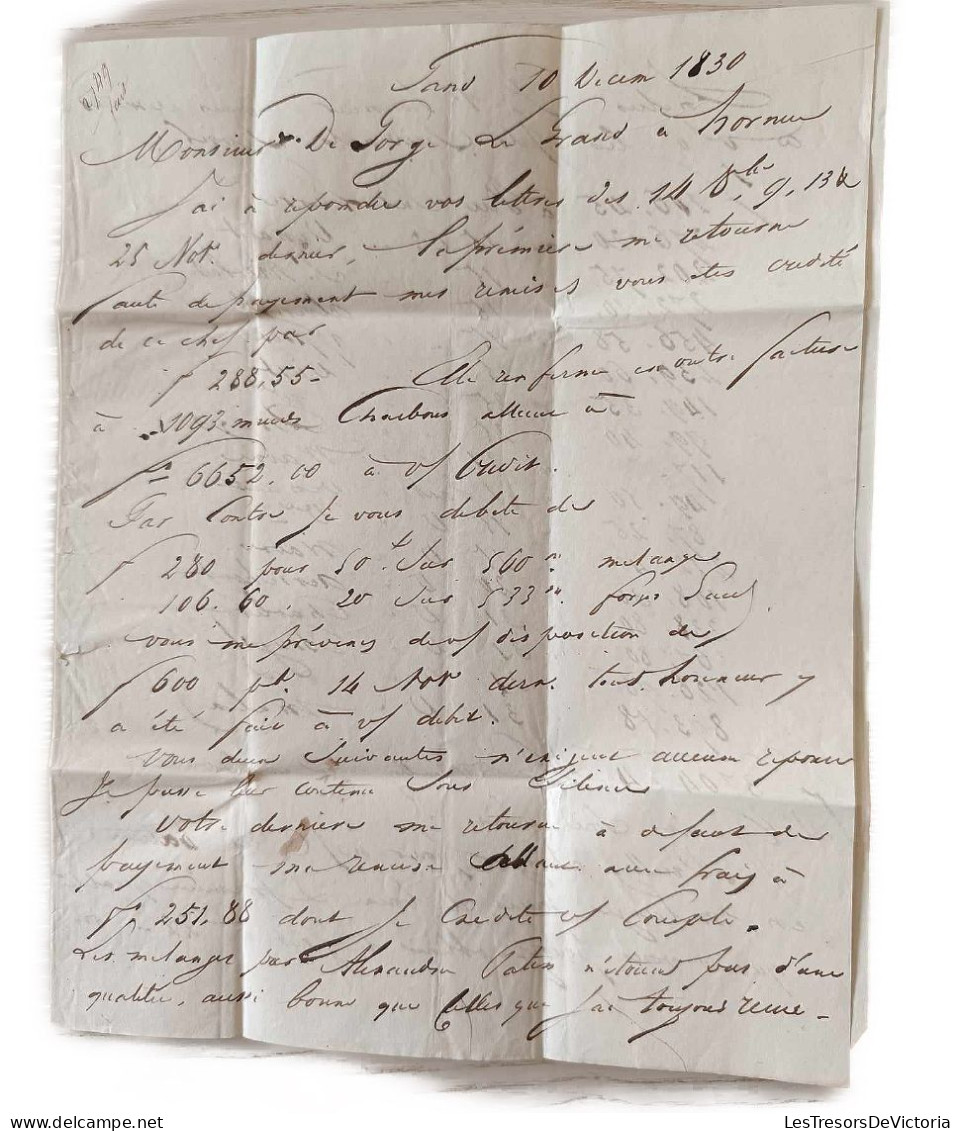 Gand 10 Decem 1830
Monsieur De Gorge Le Grand à hornue
J'ai à repondre vos lettres des 14 8bre, 9, 13 &
25 Nov. dernier, la prémiere me retourne
faute de payement mes remises vous etes credité
de ce chef par
f 288,55 - Elle renferme en outre facture
à 1093 muids Charbons allant à
f 6652,00 à v/ Credit.
Par Contre je vous debite de
f 280 pour 50 c sur 560 m melange
106.60. 20 sur 533 m. forge Gand
vous me prévenez de v/ disposition de
f 600 pr. 14 Nov dern. tout honneur y
a été fait à v/ debit.
Vous deux suivantes n'exigent aucune reponse
Je passe leur contenu sous silence
Votre derniere me retourne à defaut de
payement ma remise allant avec frais à
f 251,88 dont je Credite v/ Compte.
Les melanges par Alexandre n'etoient pas d'une
qualitée, aussi bonne que celles que j'ai toujours recue -
LesTresorsDeVictoria